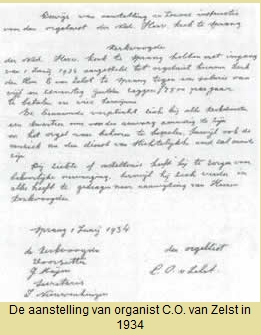 Bewijs van aanstelling en tevens instructie
van den organist der Ned. Herv. kerk te Sprang
Kerkvoogden
der Ned. Herv. kerk te Sprang hebben met ingang
van 1 Junij 1934 aangesteld tot organist hunner kerk
den Heer C. van Zelst te Sprang tegen een salaris van
vijf en zeventig gulden zeggen f 75.00 per jaar
te betalen in vier termijnen
De benoemde verplicht zich bij alle kerkdiensten
een kwartier voor de aanvang aanwezig te zijn
en het orgel naar behoren te bespelen
Bij ziekte of ontstentenis heeft hij te zorgen voor
behoorlijke vervanging, terwijl hij zich verder in
alles heeft te gedragen naar aanwijzing van Heeren
Kerkvoogden.
Sprang 1 Junij 1934
de Kerkvoogden
den organist
Voorzitter
C. O. v Zelst
Secretaris
De aanstelling van organist C.O. van Zelst in
1934